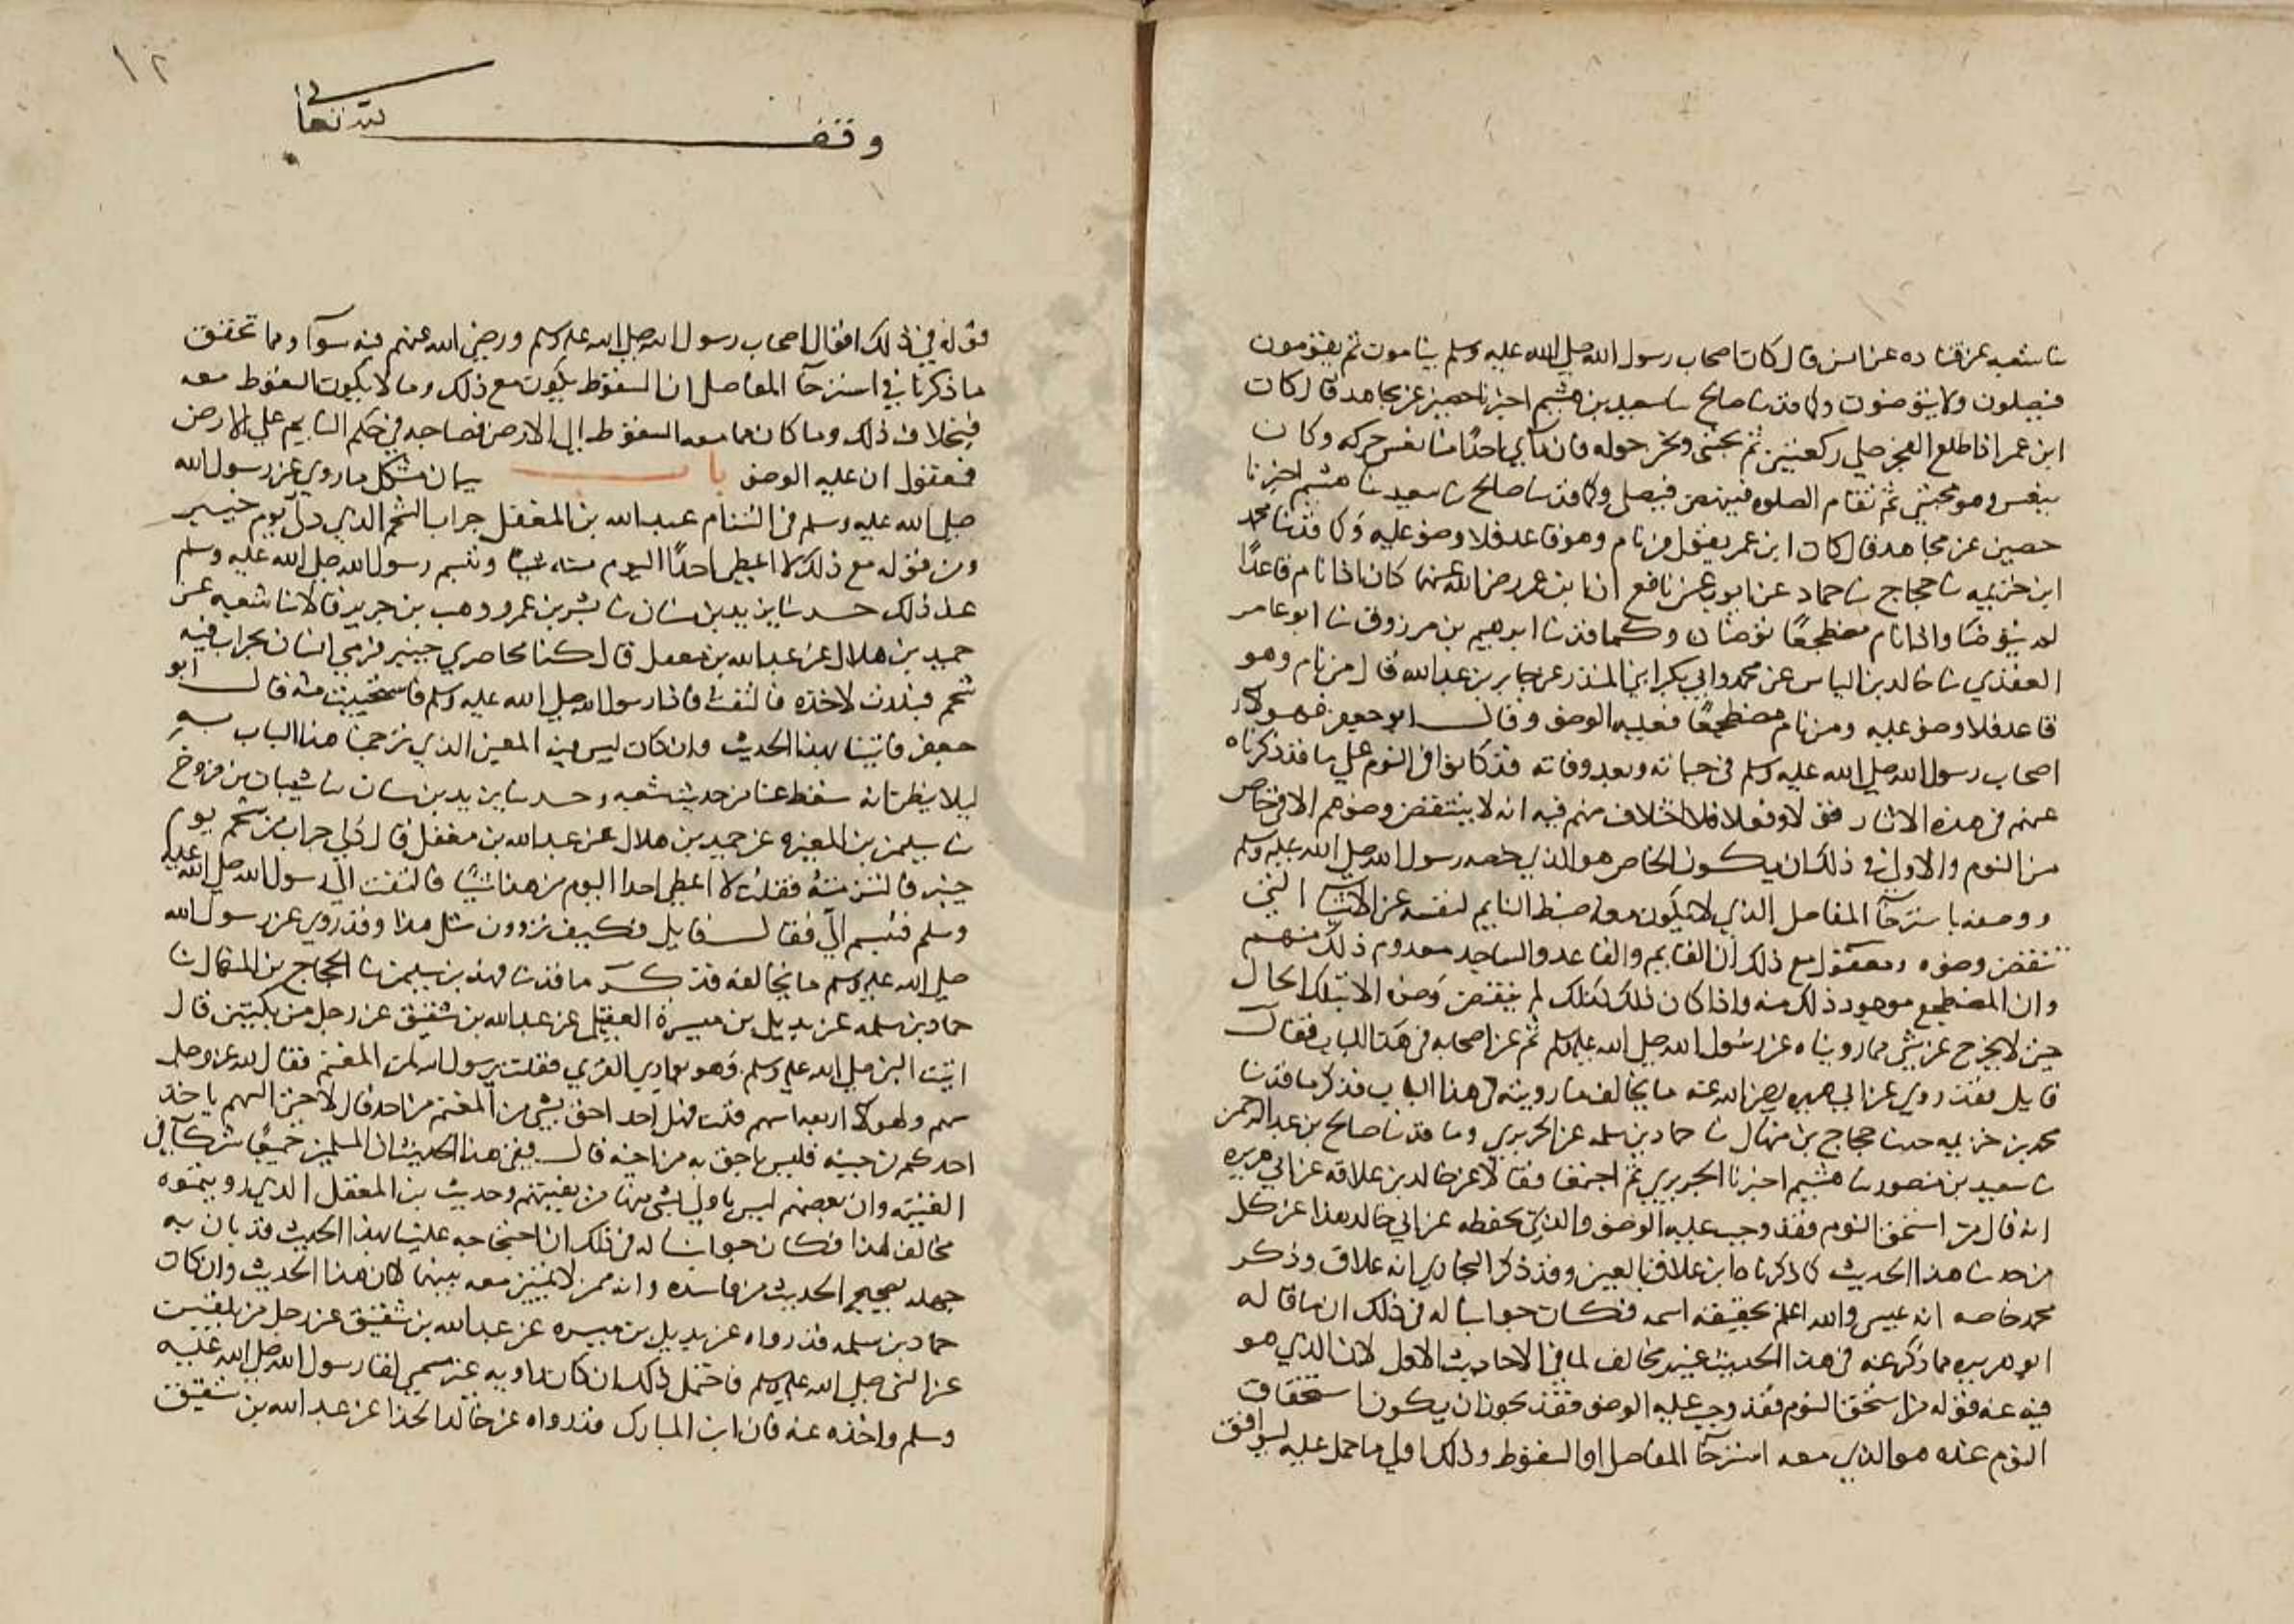 نا شعبه عن قتاده عن انس قال كان اصحاب رسول الله صلى الله عليه وسلم ينامون ثم يقومون
فيصلون ولا يتوضون وكما قد نا صالح نا سعيد بن هشيم اخبرنا حصين عن مجاهد قال كان
ابن عمر اذا طلع الفجر صلى ركعتين ثم يحتبى ونحن حوله فان راي احدا منا نعس حركه وكان
ينعس وهو محتبي ثم تقام الصلوه فينهض فيصلي وكما قد نا صالح نا سعيد نا هشيم اخبرنا
حصين عن مجاهد قال كان ابن عمر يقول من نام وهو قاعد فلا وضو عليه وكما قد نا محمد
ابن خزيمه نا حجاج نا حماد عن ايوب عن نافع ان ابن عمر رضي الله عنهما كان اذا نام قاعدًا
لم يتوضا واذا نام مضطجعًا توضا وكما قد نا ابرهيم بن مرزوق نا ابو عامر
العقدي نا خالد بن الياس عن محمد وابي بكر ابني المنذر عن جابر بن عبد الله قال من نام وهو
قاعد فلا وضو عليه ومن نام مضطجعًا فعليه الوضو وقال ابو جعفر فهولاء
اصحاب رسول الله صلى الله عليه وسلم في حياته وبعد وفاته قد كانوا في النوم على ما قد ذكرناه
عنهم في هذه الاثار قولا وفعلا فلا اختلاف منهم فيه انه لا ينتقض وضوهم الا في خاص
من النوم والاولى في ذلك ان يكون الخاص هو الذي خصه رسول الله صلى الله عليه وسلم
ووصفه باسترخآ المفاصل الذي لا يكون معه ضبط النايم لنفسه عن الاشيا التي
تنقض وضوه ومعقول مع ذلك ان القايم والقاعد والساجد معدوم ذلك منهم
وان المضطجع موجود ذلك منه واذا كان ذلك كذلك لم ينتقض وضو الا بتلك الحال
حين لا يخرج عن شي مما رويناه عن رسول الله صلى الله عليه وسلم ثم عن اصحابه في هذا الباب فقال
قايل فقد روي عن ابي هريره رضي الله عنه ما يخالف ما رويته في هذا الباب فذكر ما قد نا
محمد بن خزيمه حدثنا حجاج بن منهال نا حماد بن سلمه عن الجريري وما قد نا صالح بن عبد الرحمن
نا سعيد بن منصور نا هشيم اخبرنا الجريري ثم اجتمعا فقالا عن خالد بن علاقه عن ابي هريره
انه قال من استحق النوم فقد وجب عليه الوضو والذي نحفظه عن ابي خالد هذا عن كل
من حدثنا هذا الحديث كما ذكرناه ابن علاق بالعين وقد ذكر البخاري انه علاق وذكر
محمد خاصه انه عيسى والله اعلم بحقيقه اسمه فكان جوابنا له في ذلك ان ما قاله
ابو هريره مما ذكر عنه في هذا الحديث غير مخالف لما في الاحاديث الاول لان الذي هو
فيه عنه قوله من استحق النوم فقد وجب عليه الوضو فقد يجوز ان يكون استحقاق
النوم عنده هو الذي معه استرخآ المفاصل او السقوط وذلك اولى ما حمل عليه ليوافق
١٢
وقف لله تعالى
قوله في ذلك اقوال اصحاب رسول الله صلى الله عليه وسلم ورضي الله عنهم فيه سوآ ومما تحقق
ما ذكرنا في استرخآ المفاصل ان السقوط يكون مع ذلك وما لا يكون السقوط معه
فبخلاف ذلك وما كان مما معه السقوط الى الارض فصاحبه في حكم النايم على الارض
فمعقول ان عليه الوضو باب بيان مشكل ما روي عن رسول الله
صلى الله عليه وسلم في التنام عبد الله بن المغفل جراب الشحم الذي دلي يوم خيبر
ومن قوله مع ذلك لا اعطي احدًا اليوم منه شيًا وتبسم رسول الله صلى الله عليه وسلم
عند ذلك حدثنا يزيد بن سنان نا بشر بن عمر ووهب بن جرير قالا نا شعبه عن
حميد بن هلال عن عبد الله بن مغفل قال كنا محاصري خيبر فرمى انسان بجراب فيه
شحم فبدرت لاخذه فالتفت فاذا رسول الله صلى الله عليه وسلم فاستحييت منه قال ابو
جعفر فاتينا بهذا الحديث وان كان ليس فيه المعنى الذي ترجمنا هذا الباب به
ليلا يظن انه سقط عنا من حديث شعبه وحدثنا يزيد بن سنان نا شيبان بن فروخ
نا سليمن بن المغيره عن حميد بن هلال عن عبد الله بن مغفل قال دلي جراب من شحم يوم
خيبر فالتزمته فقلت لا اعطي احدا اليوم من هذا شيًا فالتفت الى رسول الله صلى الله عليه
وسلم فتبسم الي فقال قايل فكيف تروون مثل هذا وقد روي عن رسول الله
صلى الله عليه وسلم ما يخالفه فذكر ما قد نا فهد بن سليمن نا الحجاج بن المنهال نا
حماد بن سلمه عن بديل بن ميسرة العقيلي عن عبد الله بن شقيق عن رجل من بلقين قال
اتيت النبي صلى الله عليه وسلم وهو بوادي القري فقلت يرسول الله لمن المغنم فقال لله عز وجل
سهم ولهولاء اربعه اسهم قلت فهل احد احق بشي من المغنم من احد قال لا حتى السهم ياخذه
احدكم من جنبه فليس باحق به من اخيه قال ففي هذا الحديث ان المسلمين جميعًا شركآ في
الغنيمة وان بعضهم ليس باولى بشي منها من بقيتهم وحديث بن المغفل الذي رويتموه
مخالف لهذا فكان جوابنا له في ذلك ان احتجاجه علينا بهذا الحديث قد بان به
جهله بصحيح الحديث من فاسده وانه ممن لا تمييز معه بينهما لان هذا الحديث وان كان
حماد بن سلمه قد رواه عن بديل بن ميسره عن عبد الله بن شقيق عن رجل من بلقين
عن النبي صلى الله عليه وسلم فاحتمل ذلك ان كان راويه عن سمي لقا رسول الله صلى الله عليه
وسلم واخذه عنه فان ابن المبارك قد رواه عن خالد الحذا عن عبد الله بن شقيق